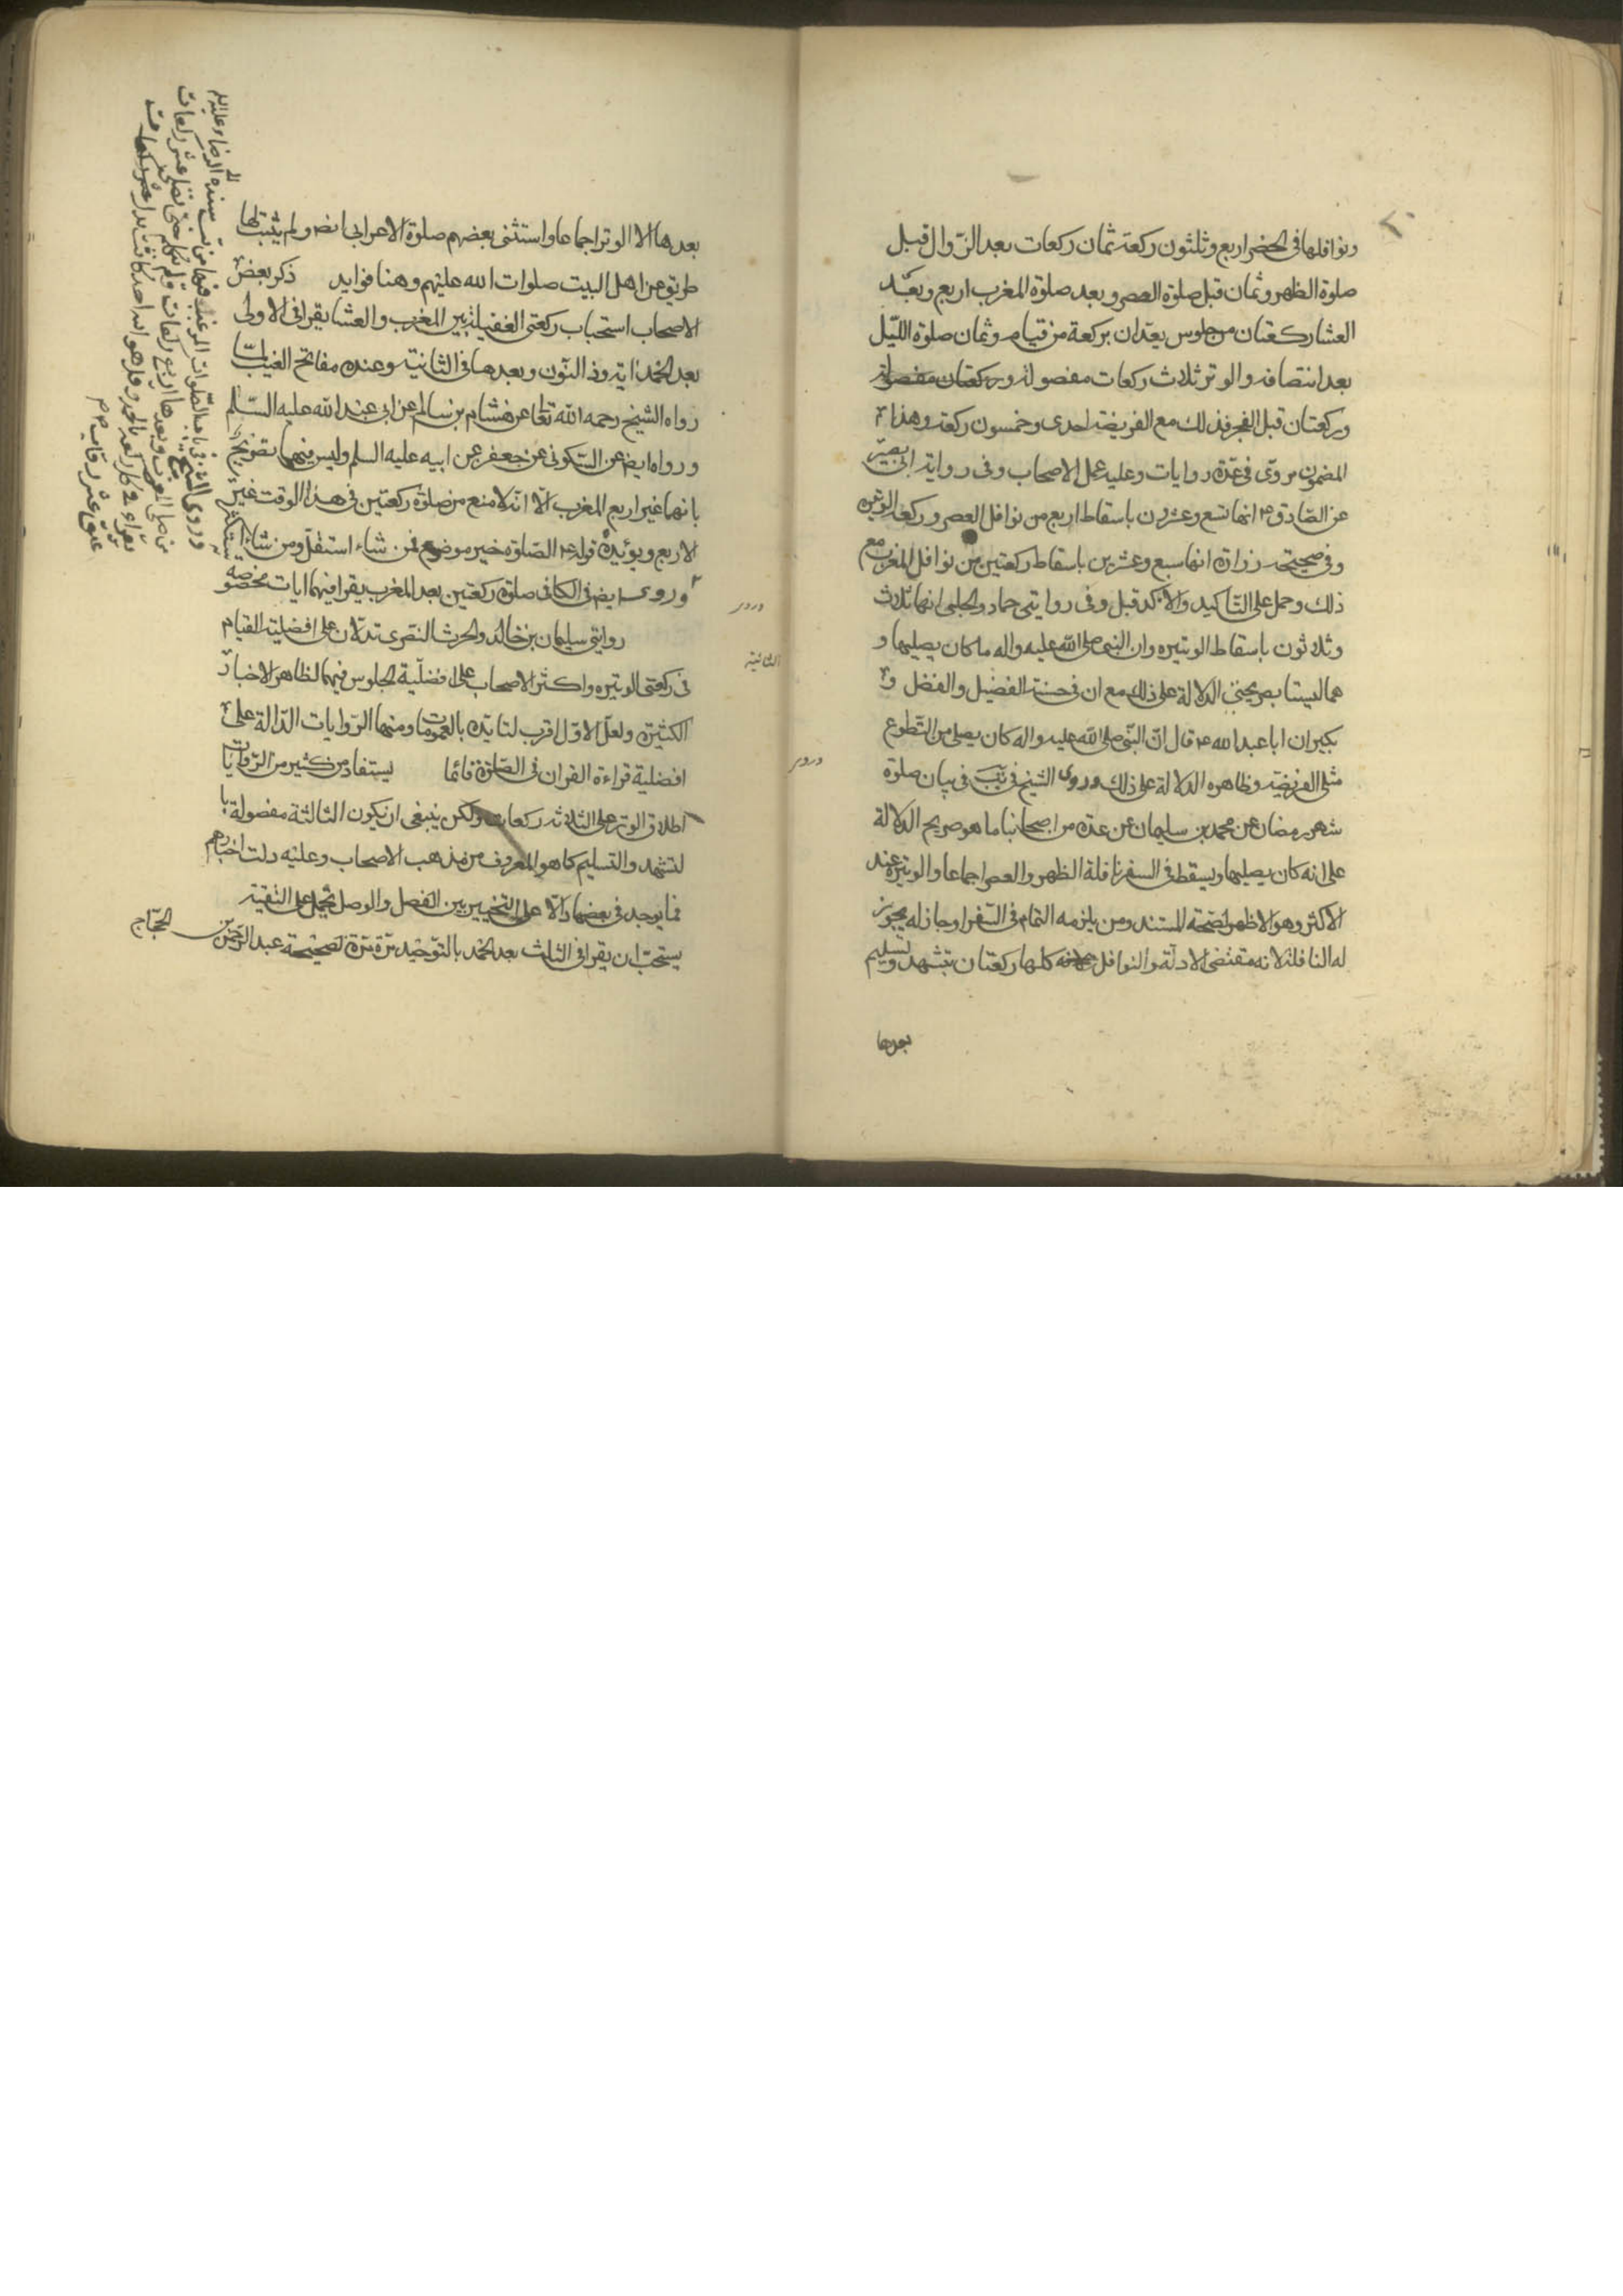 ونوافلها فى الحضر اربع وثلثون ركعة ثمان ركعات بعد الزّوال قبل
صلوة الظهر وثمان قبل صلوة العصر وبعد صلوة المغرب اربع وبعد
العشا ركعتان من جلوس يعدّان بركعة من قيام وثمان صلوة اللّيل
بعد انتصافه والوتر ثلاث ركعات مفصولة وركعتان مفصولة
وركعتان قبل الفجر فذلك مع الفريضة احدى وخمسون ركعة وهذا
المضمون مروّى فى عدّة روايات وعليه عمل الاصحاب وفى رواية ابى بصير
عن الصّادق ع انها تسع وعشرون باسقاط اربع من نوافل العصر وركعة الوتيره
وفى صحيحة زرارة انها سبع وعشرين باسقاط ركعتين من نوافل المغرب مع
ذلك وحمل على التّاكيد والآكد قبل وفى روايتى حماد والحلبى انها ثلاث
وثلاثون باسقاط الوتيره وان النبى صلى الله عليه واله ما كان يصليها و
هما ليستا بصريحتى الدلالة على ذلك مع ان فى حسنة الفضيل والفضل و
بكير ان ابا عبد الله ع قال انّ النبّى صلى الله عليه واله كان يصلى من التّطوع
مثلى الفريضة وظاهره الدلالة على ذلك وروى الشيخ فى يب فى بيان صلوة
شهر رمضان عن محمد بن سليمان عن عدة من اصحابنا ما هو صريح الدلالة
على انه كان يصليها ويسقط فى السفر نافلة الظهر والعصر اجماعا والوتيرة عند
الاكثر وهو الاظهر لصحة المستند ومن يلزمه التمام فى السّفر او جاز له يجوز
له النافلة لانه مقتضى الادلّة والنوافل كلها ركعتان بتشهد وتسليم
بعدها
بعدها الا الوتر اجماعا واستثنى بعضهم صلوة الاعرابى ايضا ولم يثبت لها
طريق من اهل البيت صلوات الله عليهم وهنا فوايد ذكر بعض
الاصحاب استحباب ركعتى الغفيلة بين المغرب والعشا يقرا فى الاولى
بعد الحمد اية وذا النّون وبعدها فى الثانية وعنده مفاتح الغيب
رواه الشيخ رحمه الله تعالى عن هشام بن سالم عن ابى عبد الله عليه السّلم
ورواه ايض عن السّكونى عن جعفر عن ابيه عليه السلم وليس فيهما تصريح
بانهما غير اربع المغرب الّا انّه لا منع من صلوة ركعتين فى هذا الوقت غير
الاربع ويؤيده قوله ع الصّلوة خير موضوع فمن شاء استقلّ ومن شاء استكثر
وروى ايض فى الكافى صلوة ركعتين بعد المغرب يقرا فيهما ايات مخصوصه
روايتى سليمان بن خالد والحرث النّصرى تدلّان على افضلية القيام
فى ركعتى الوتيره واكثر الاصحاب على افضلّية الجلوس فيهما لظاهر الاخبار
الكثيرة ولعلّ الاوّل اقرب لتايّده بالعمومات ومنها الرّوايات الدّالة على
افضلية قراءة القران فى الصّلوة قائما يستفاد من كثير من الرّوايات
اطلاق الوتر على الثلاثة ركعات ولكن ينبغى ان يكون الثالثة مفصولة با
لتشهد والتسليم كما هو المعروف من مذهب الاصحاب وعليه دلت اخبارهم
فما يوجد فى بعضها دالّا على التخيير بين الفصل والوصل يحمل على التقية
يستحبّ ان يقرا فى الثلث بعد الحمد بالتّوحيد مرّة مرّة لصحيحة عبد الرحمن بن الحجّاج
وروى الشيخ فى باب الصّلوات المرغّب فيها من يب بسنده الى الرضا عليه السلم
من صلى المغرب وبعدها اربع ركعات ولم يتكلم حتى يصلى عشر ركعات
يقراء فى كل ركعة بالحمد وقل هو الله احد كانت عدل
عتق عشر رقاب
الثانية